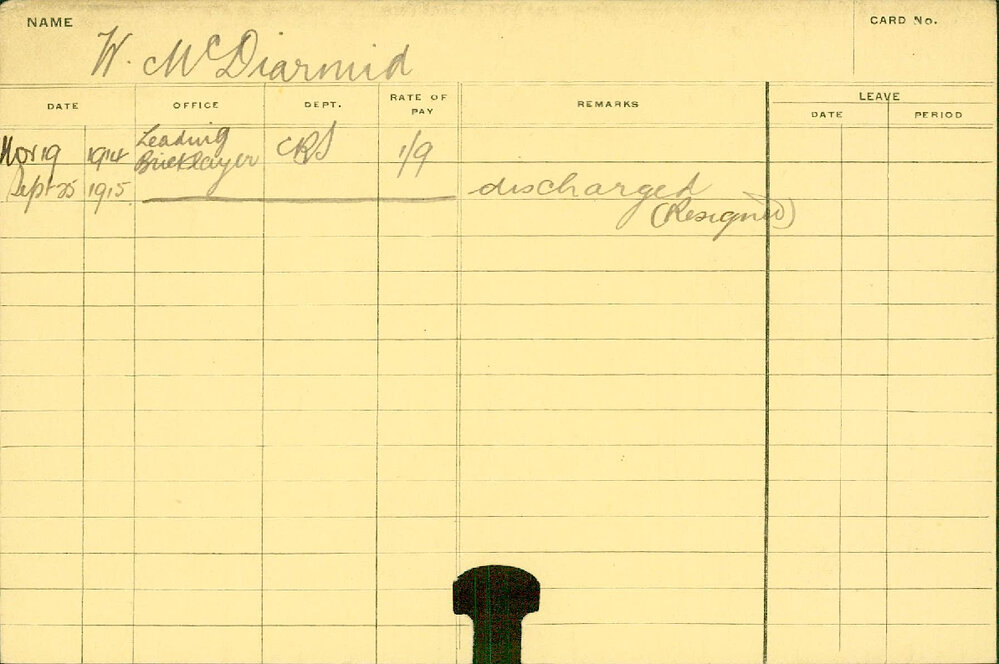 NAME
CARD No.
W. McDiarmid
DATE
OFFICE
DEPT.
RATE OF PAY
REMARKS
LEAVE
DATE
PERIOD
Nov 19 1914 Leading Bricklayer CRS 1/9
Sept 25 1915. discharged
(Resigned)